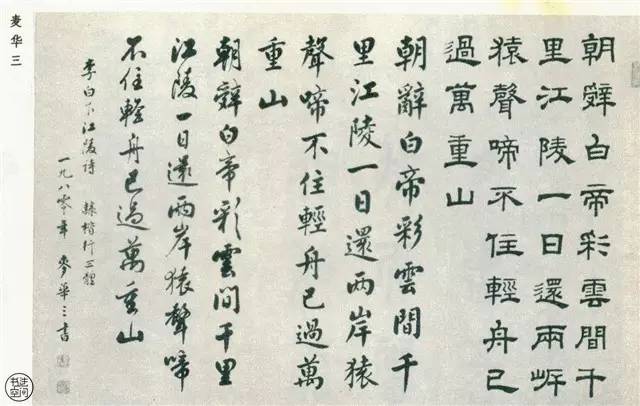 朝辤白帝彩雲間千
里江陵一日還兩岸
猿聲啼不住輕舟已
過萬重山
朝辭白帝彩雲間千
里江陵一日還兩岸猿
聲啼不住輕舟已過萬
重山
朝辤白帝彩雲間千里
江陵一日還兩岸猿聲啼
不住輕舟已過萬重山
李白下江陵诗 隸楷行三體
一九八零年 麥華三书
麦华三
书法
空间